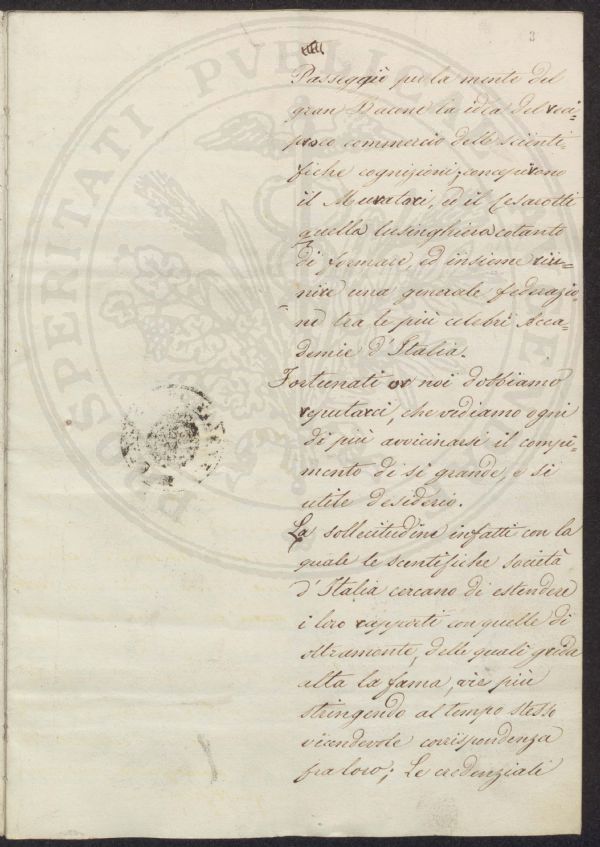 3
Passeggiò per la mente del
gran Bacone la idea del reci-
proco commercio delle scienti-
fiche cognizioni, concepirono
il Muratori, ed il Cesarotti
quella lusinghiera cotanto
di formare, ed insieme riu-
nire una generale federazio
ne tra le più celebri Acca-
demie d'Italia.
Fortunati or noi dobbiamo
reputarci, che vediamo ogni
dì più avvicinarsi il compi-
mento di sì grande, e sì
utile desiderio.
La sollecitudine infatti con la
quale le scentifiche società
d'Italia cercano di estendere
i loro rapporti con quelle di
oltramonte, delle quali grida
alta la fama, vie più
stringendo al tempo stesso
vicendevole corrispondenza
fra loro; Le credenziali
PROSPERITATI PVBLICAE